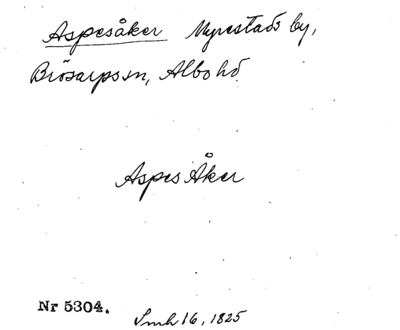 Aspesåker Myrestads by,
Brösarps sn, Albo hd
Aspes Åker
Nr 5304.
Lmh 16, 1825